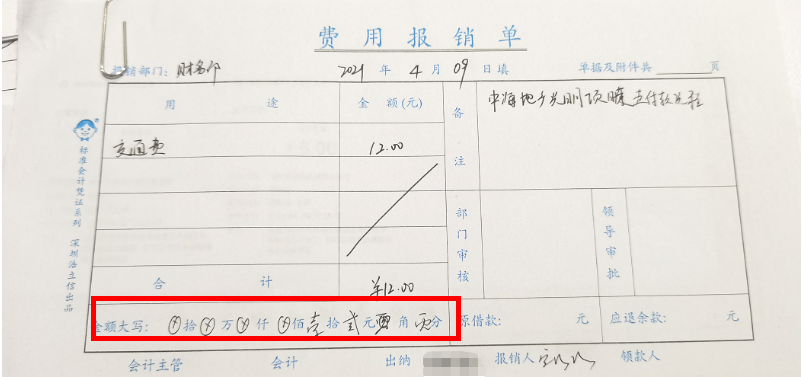 费用报销单
报销部门: 财务部 2021 年 4 月 09 日填 单据及附件共 页
用途 金额(元) 备注
交通费 12.00
部门审核 领导审批
合计 ¥12.00
金额大写: ⊗拾⊗万⊗仟⊗佰壹拾贰元 角 分 原借款: 元 应退余款: 元
会计主管 会计 出纳 报销人 领款人
标准会计凭证系列 深圳浩立信出品